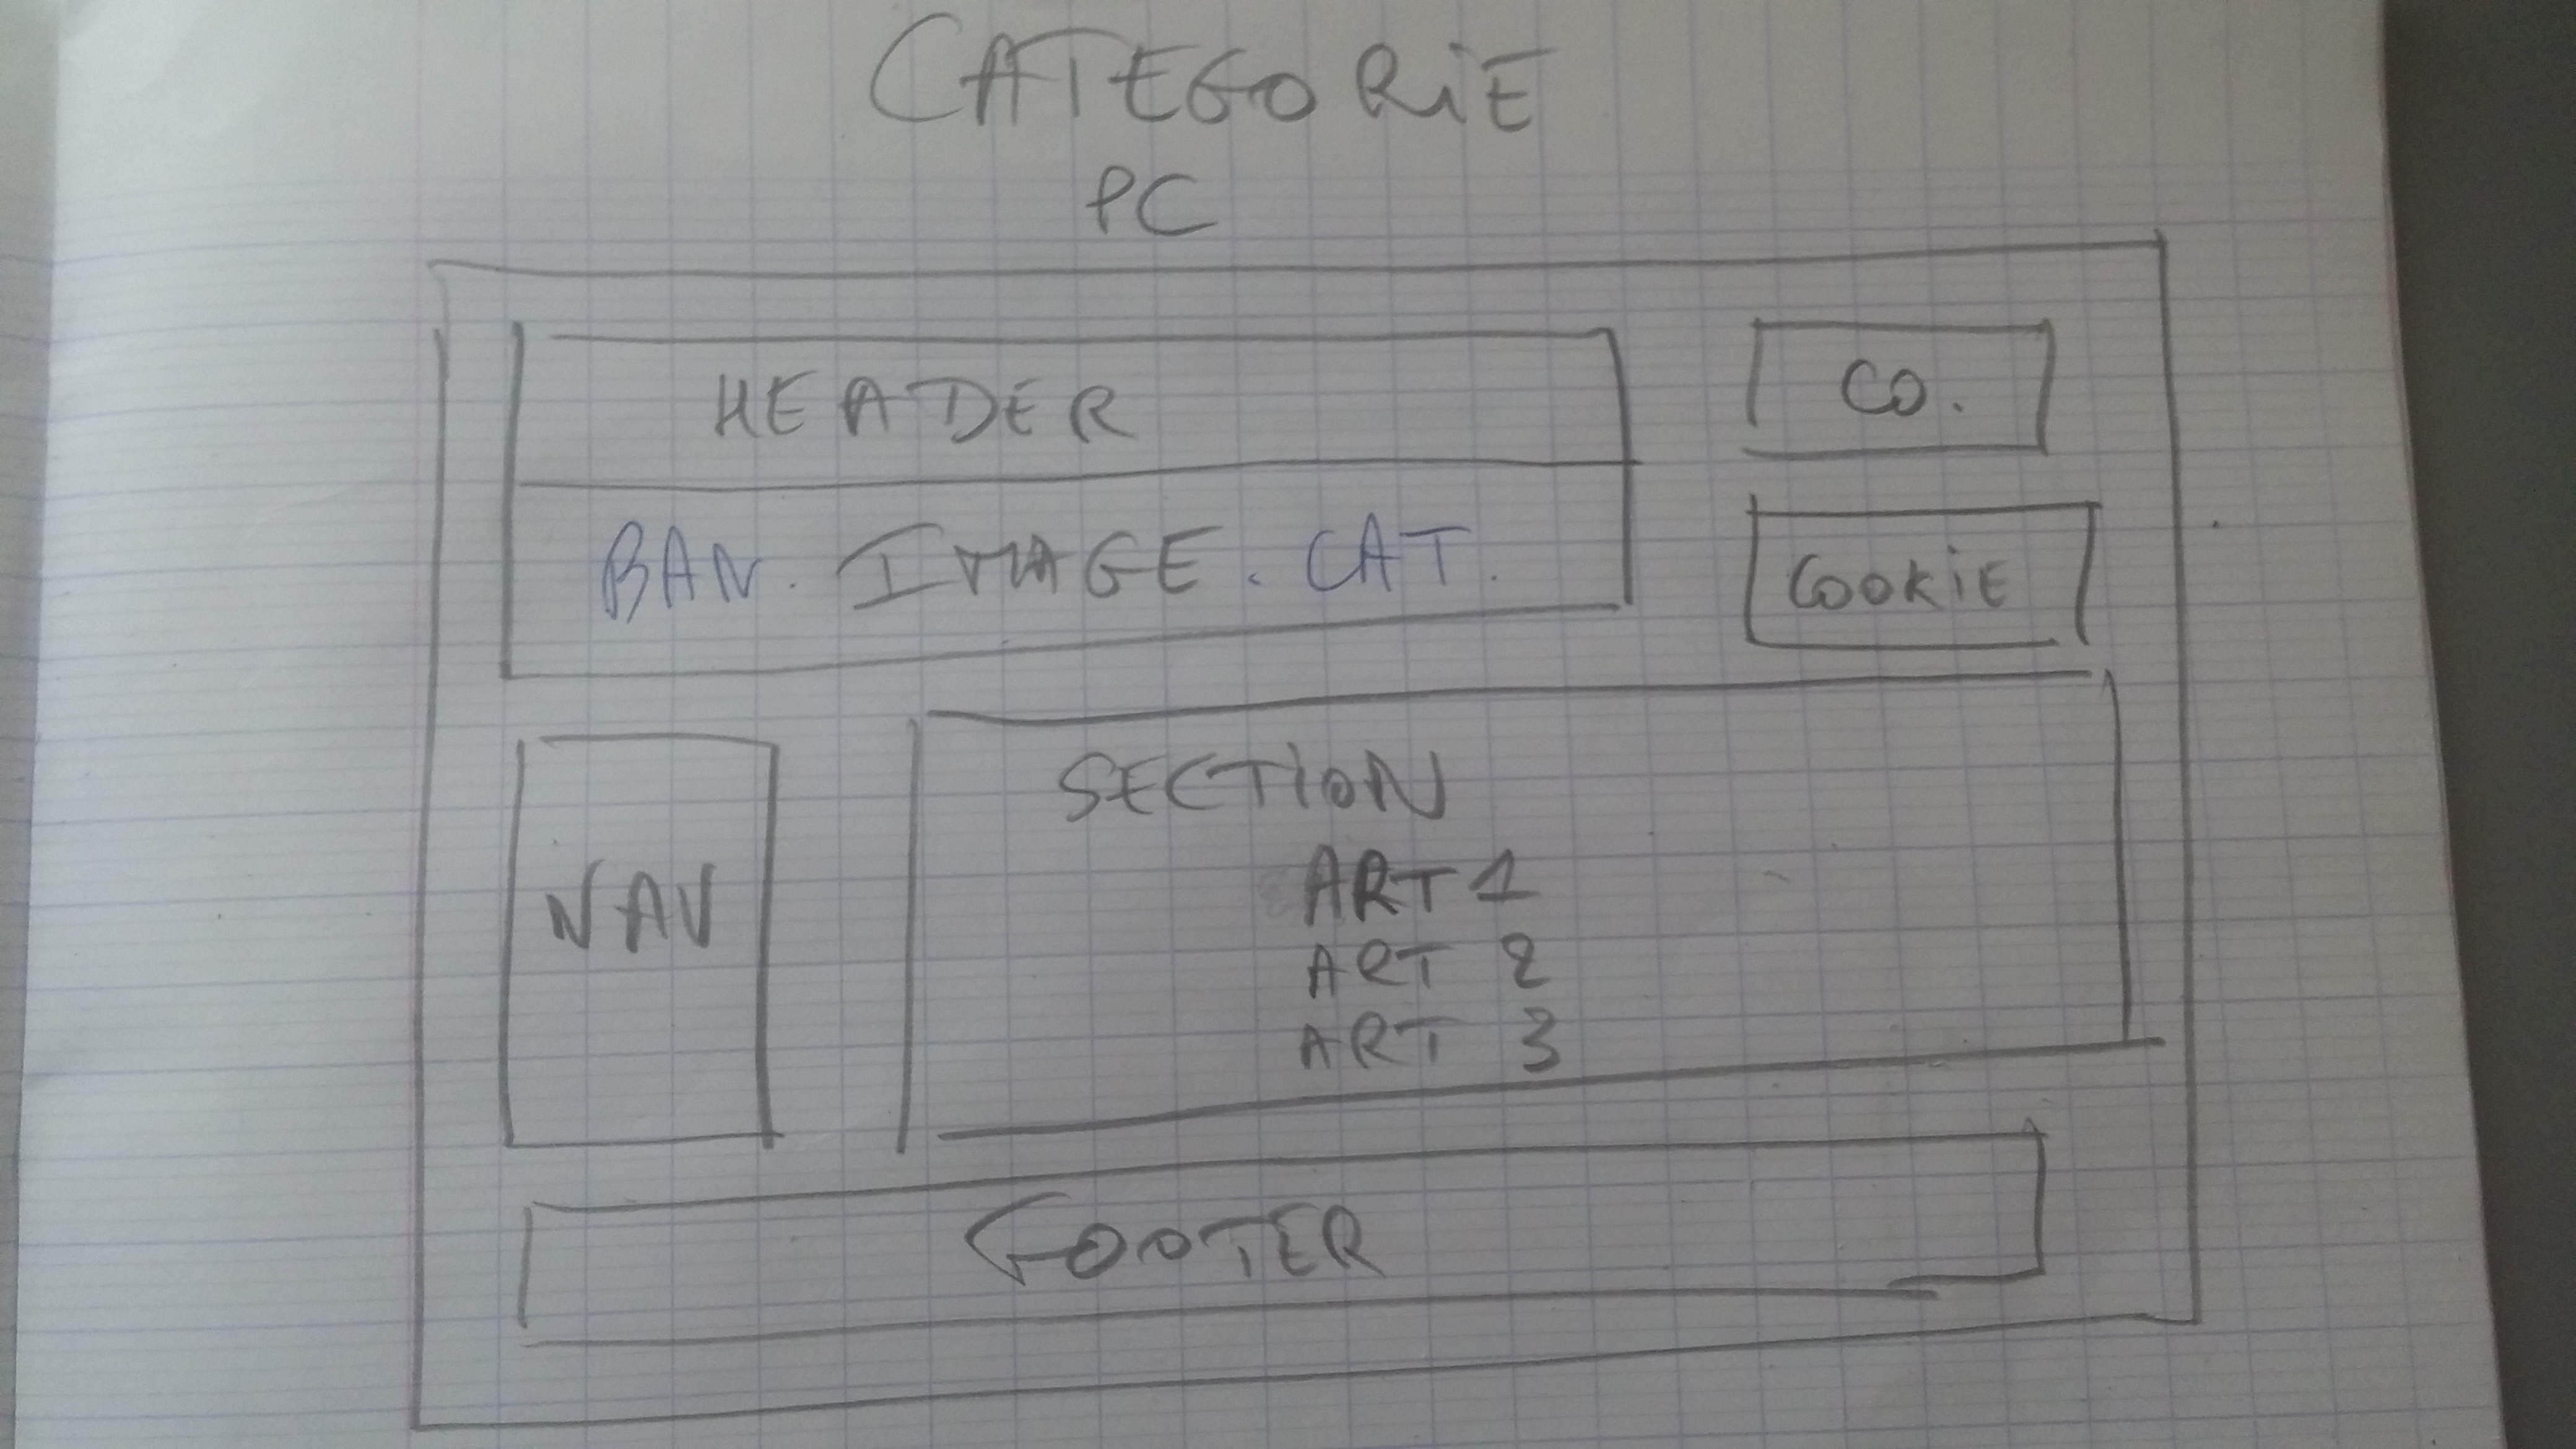 CATEGORIE
PC
HEADER
CO.
BAN. IMAGE. CAT.
COOKiE
NAV
SECTiON
ART 1
ART 2
ART 3
FOOTER